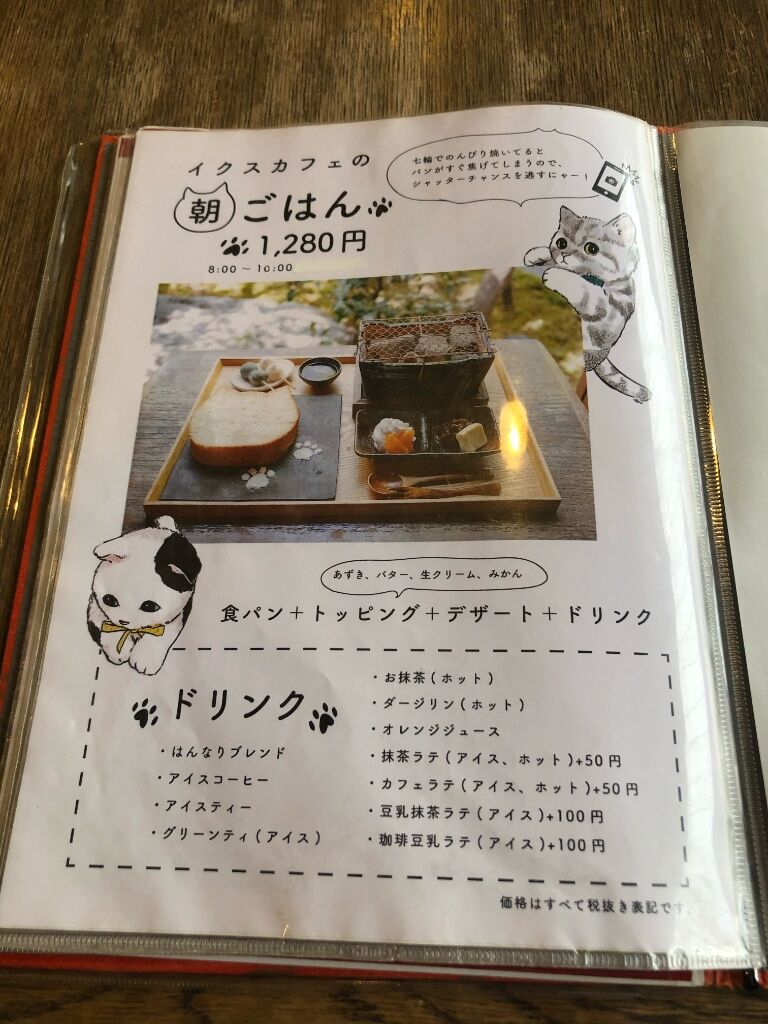 イクスカフェの
朝ごはん
1,280円
8:00～10:00
七輪でのんびり焼いてると
パンがすぐ焦げてしまうので、
シャッターチャンスを逃すにゃー！
あずき、バター、生クリーム、みかん
食パン＋トッピング＋デザート＋ドリンク
ドリンク
・はんなりブレンド
・アイスコーヒー
・アイスティー
・グリーンティ（アイス）
・お抹茶（ホット）
・ダージリン（ホット）
・オレンジジュース
・抹茶ラテ（アイス、ホット）+50円
・カフェラテ（アイス、ホット）+50円
・豆乳抹茶ラテ（アイス）+100円
・珈琲豆乳ラテ（アイス）+100円
価格はすべて税抜き表記です。